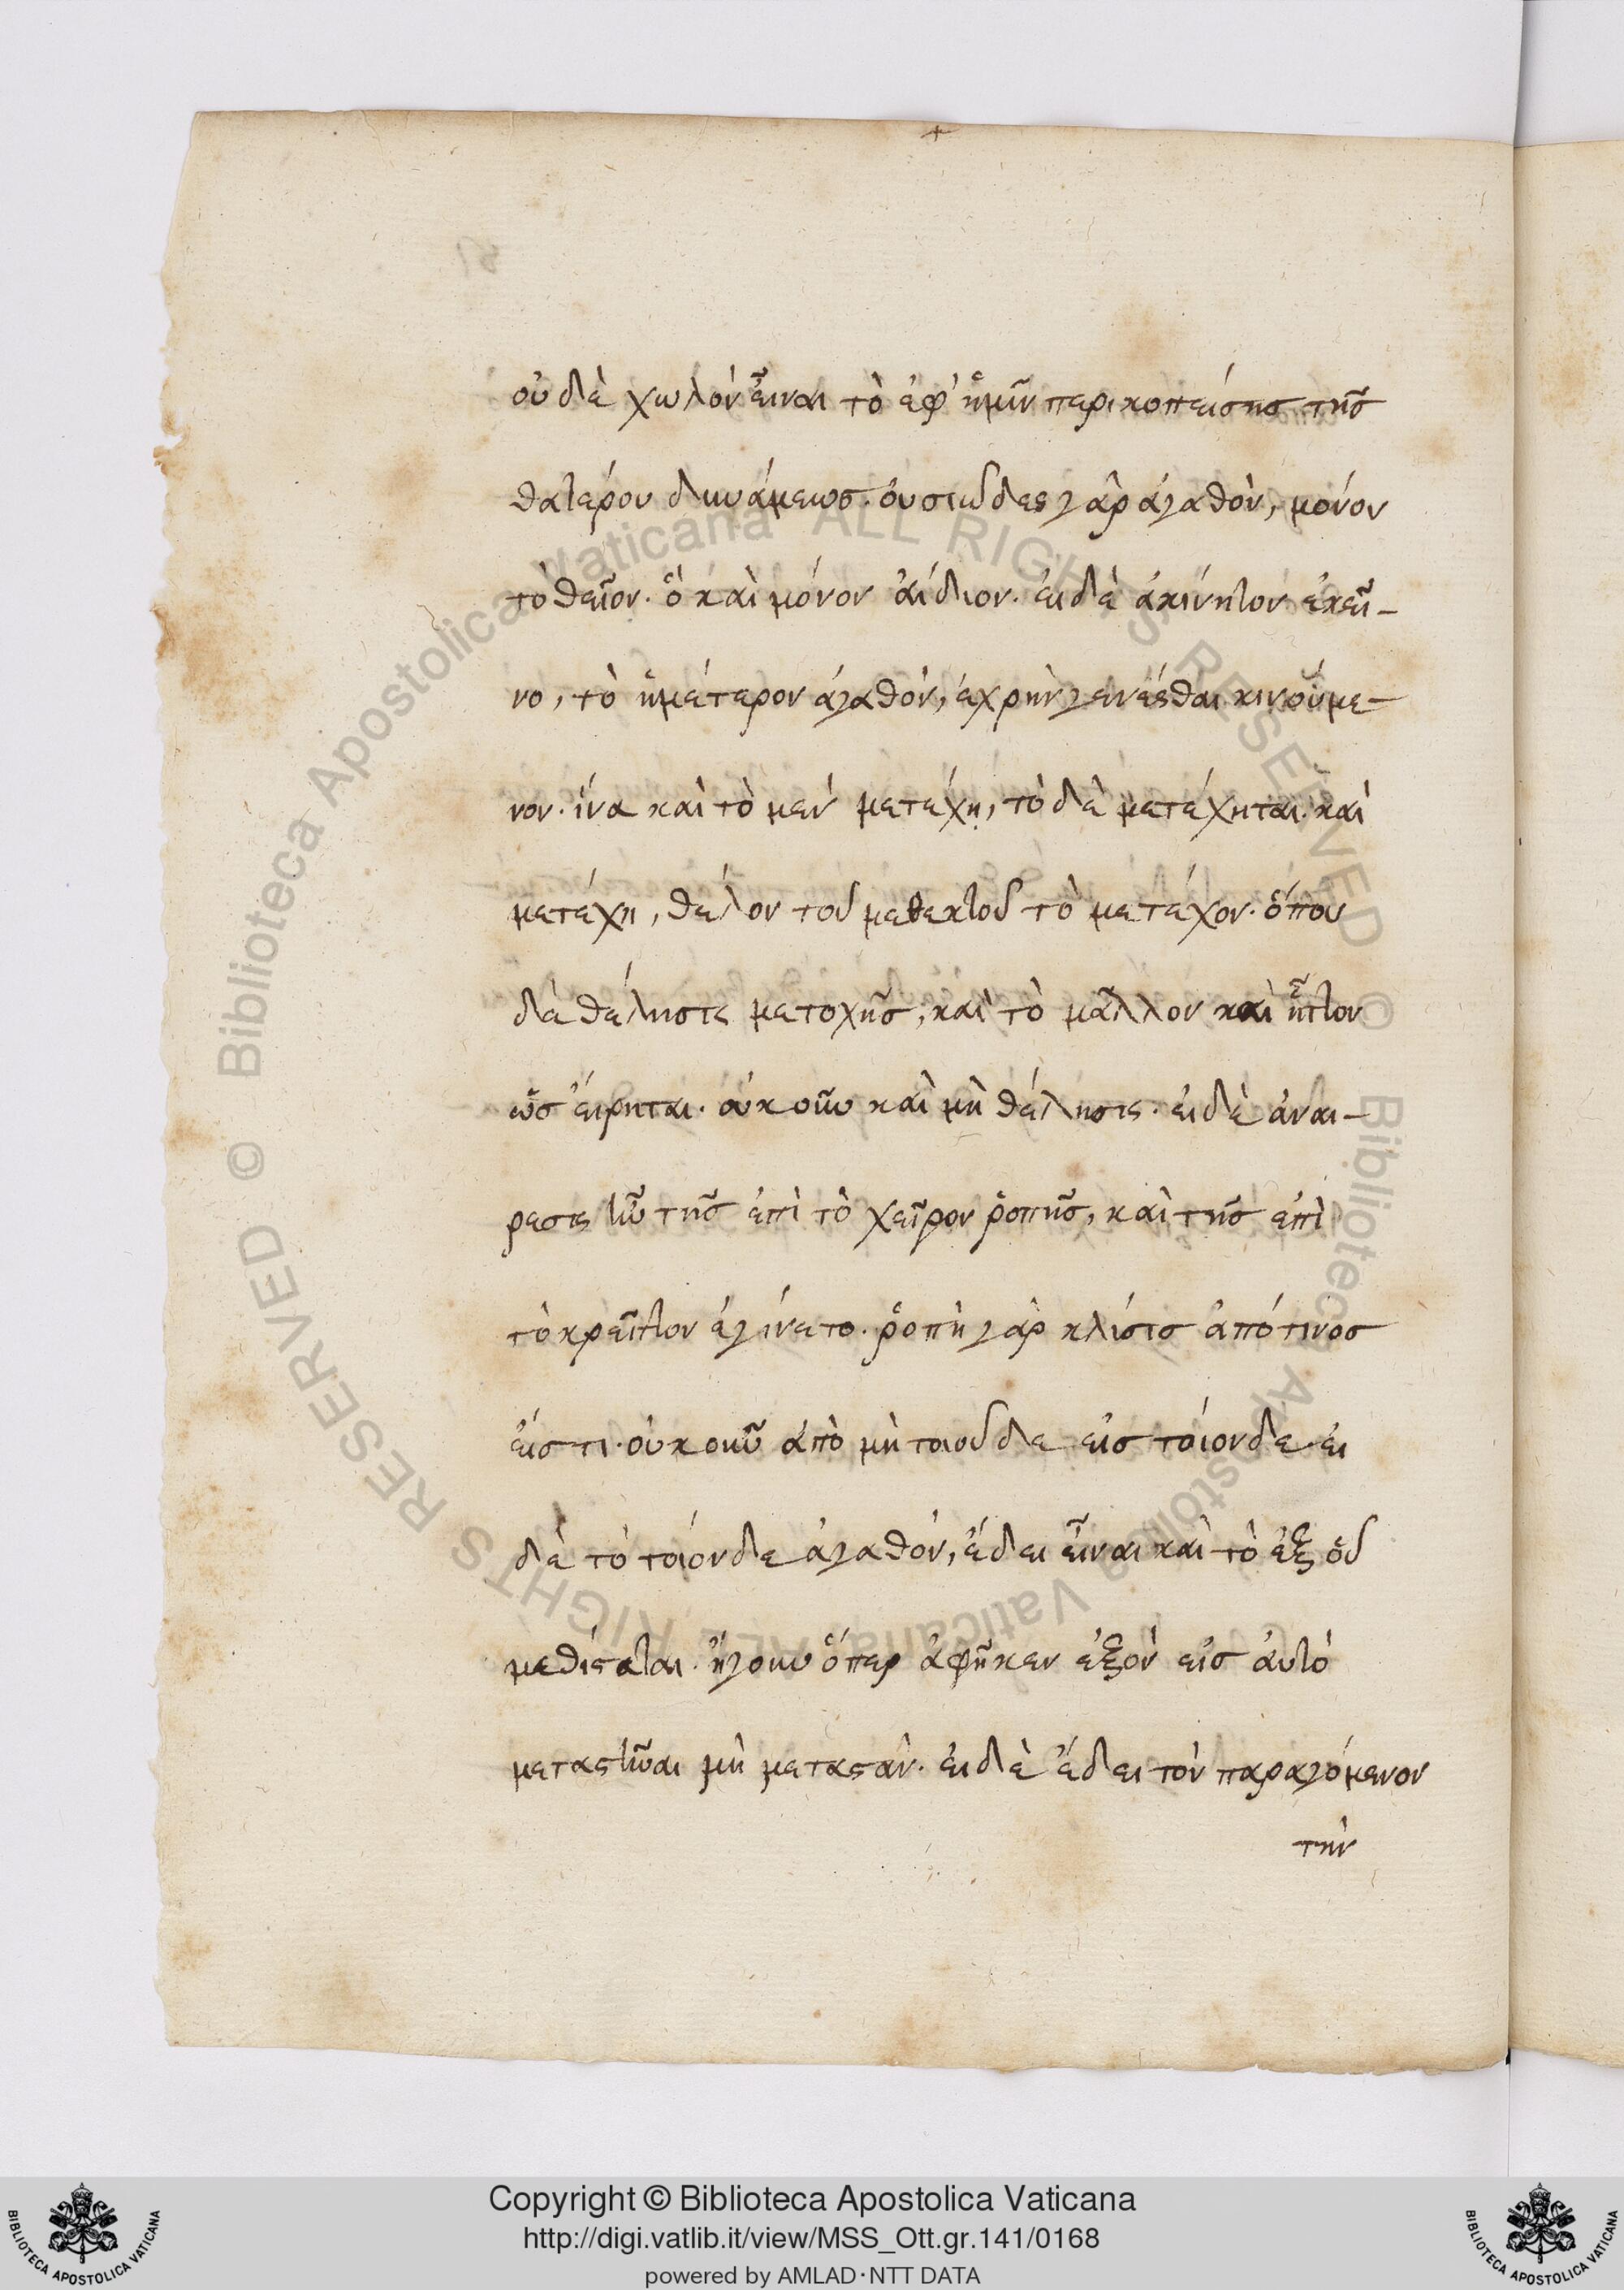 οὐδὲ χωλὸν εἶναι τὸ ἐφ' ἡμῖν περικοπείσης τῆς
θατέρου δυνάμεως. οὐσιῶδες γὰρ ἀγαθὸν, μόνον
τὸ θεῖον. ὃ καὶ μόνον ἀίδιον. εἰ δὲ ἀκίνητον ἐκεῖ-
νο, τὸ ἡμέτερον ἀγαθὸν, ἐχρῆν γενέσθαι κινούμε-
νον. ἵνα καὶ τὸ μὲν μετέχῃ, τὸ δὲ μετέχηται. καὶ
μετέχη, θέλον τοῦ μεθεκτοῦ τὸ μετέχον. ὅπου
δὲ θέλησις μετοχῆς, καὶ τὸ μᾶλλον καὶ ἧττον
ὡς εἴρηται. οὐκοῦν καὶ μὴ θέλησις. εἰ δὲ ἀναι-
ρεσις ἦν τῆς ἐπὶ τὸ χεῖρον ῥοπῆς, καὶ τῆς ἐπὶ
τὸ κρεῖττον ἐγίνετο. ῥοπὴ γὰρ κλίσις ἀπό τινος
εἴς τι. οὐκοῦν ἀπὸ μὴ τοιοῦδε εἰς τοιόνδε. εἰ
δὲ τὸ τοιόνδε ἀγαθὸν, ἔδει εἶναι καὶ τὸ ἐξ οὗ
μεθίσταται. ἤγουν ὅπερ ἀφῆκεν ἐξὸν εἰς αὐτὸ
μεταστῆναι μὴ μεταστὰν. εἰ δὲ ἔδει τὸν παραγόμενον
τὴν
Copyright © Biblioteca Apostolica Vaticana
http://digi.vatlib.it/view/MSS_Ott.gr.141/0168
powered by AMLAD·NTT DATA